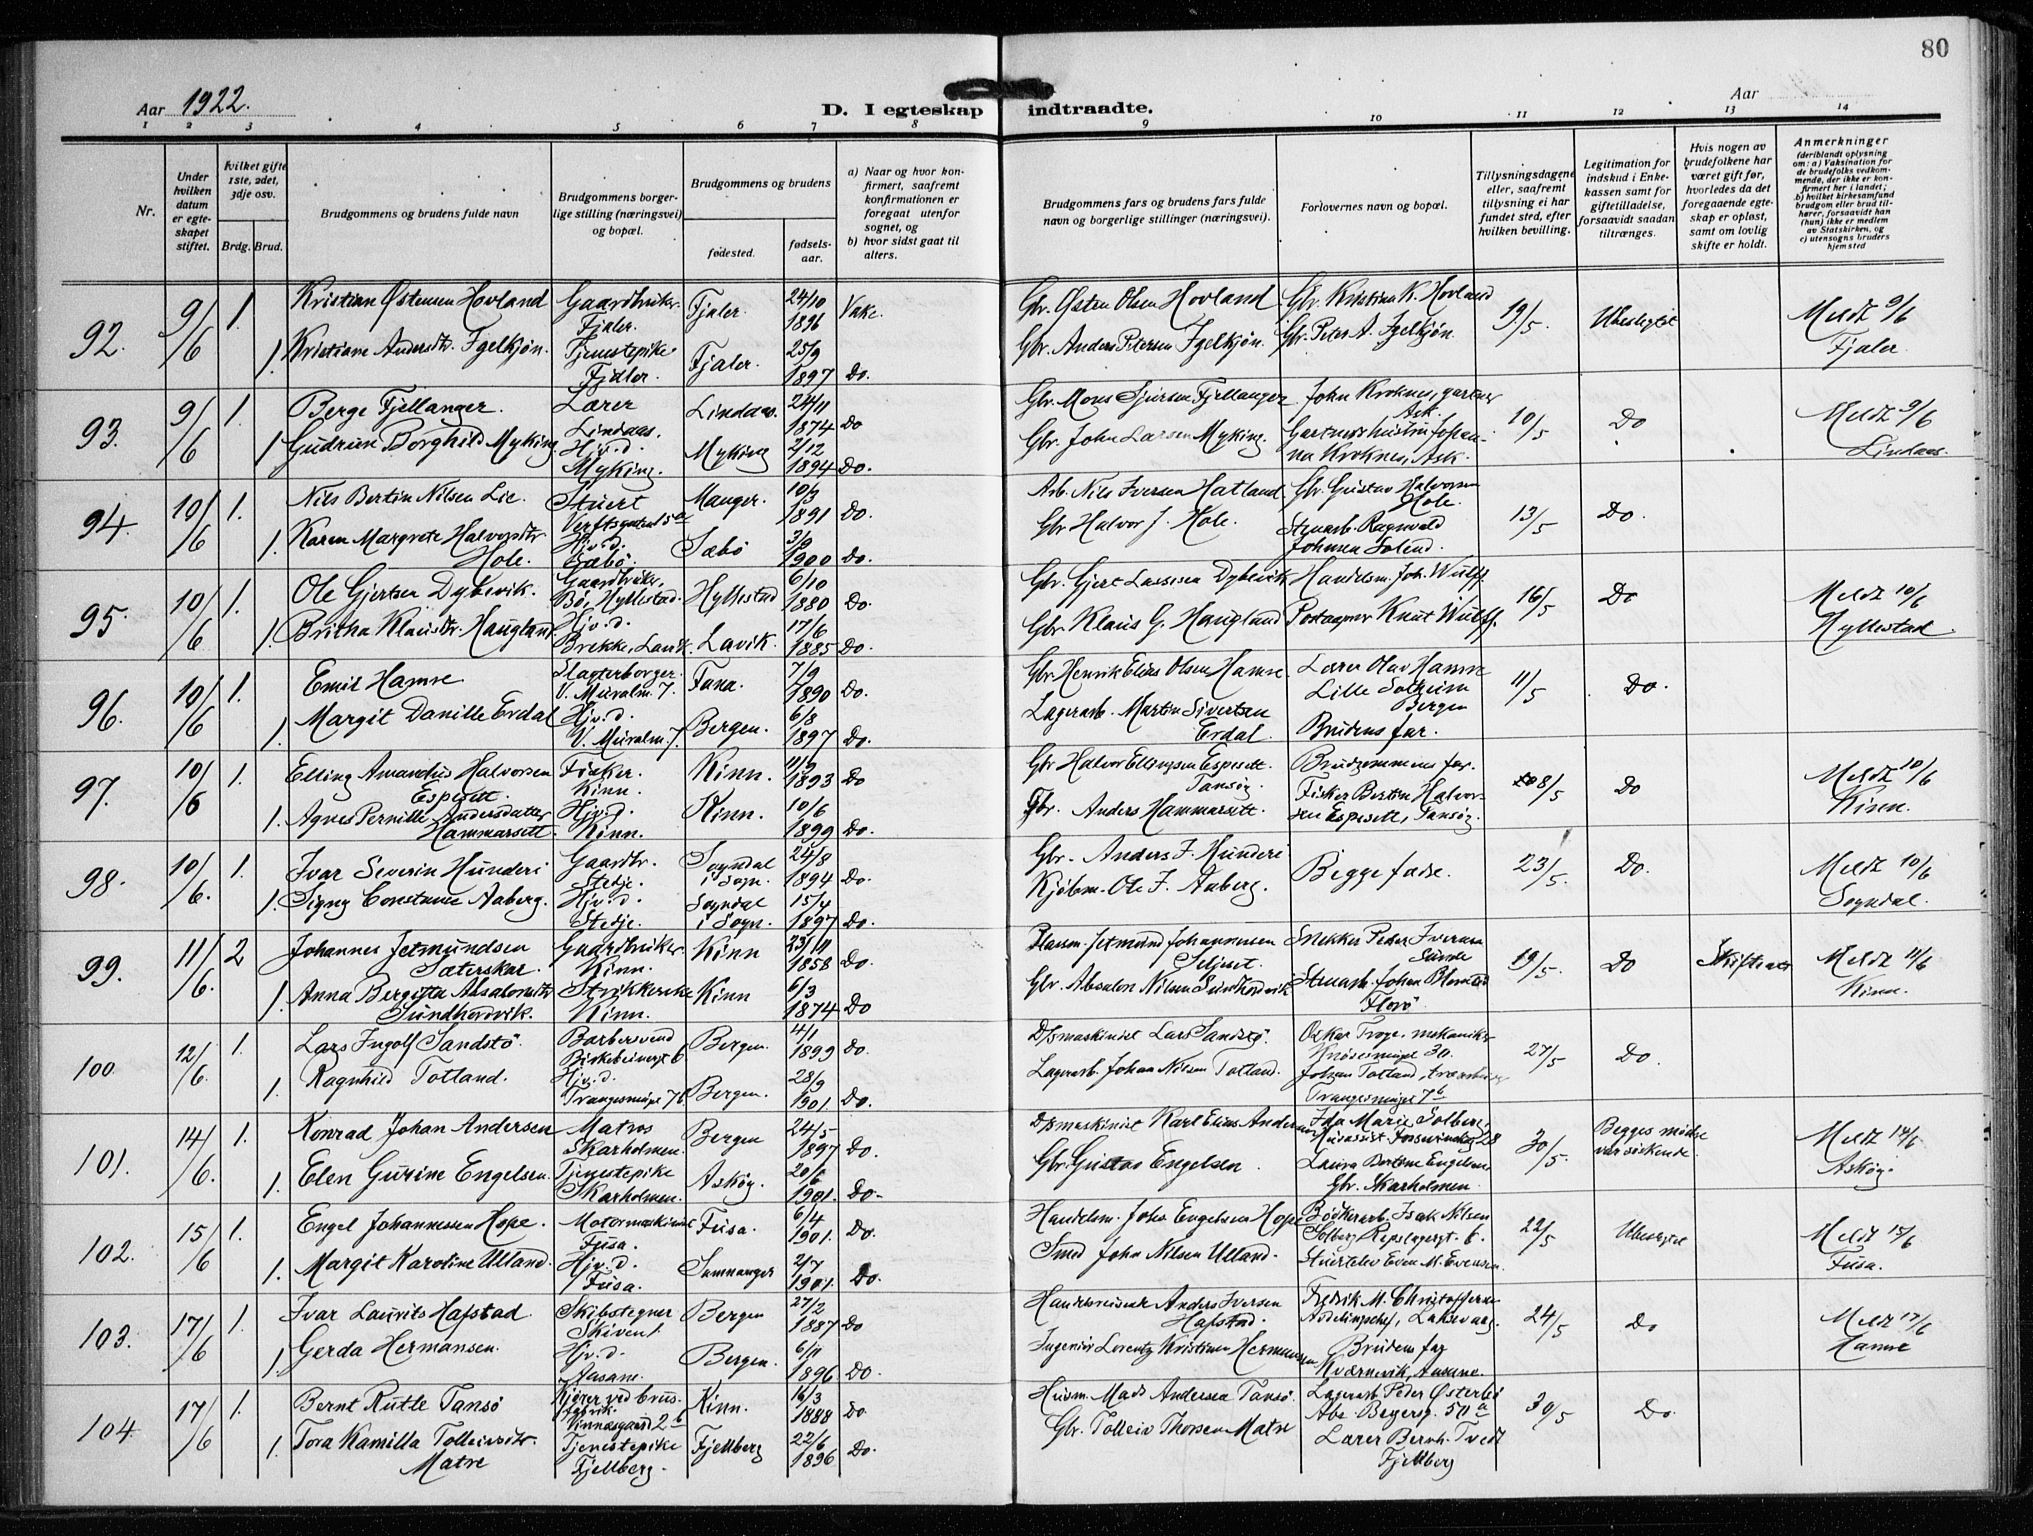 80
Aar 1922.
D. I egteskap indtraadte.
Aar
1 2 3 4 5 6 7 8 9 10 11 12 13 14
Nr.
Under hvilken datum er egteskapet stiftet.
Hvilket gifte 1ste, 2det, 3dje osv.
Brdg. Brud.
Brudgommens og brudens fulde navn
Brudgommens borgerlige stilling (næringsvei) og bopæl.
Brudgommens og brudens
fødested.
fødselsaar.
a) Naar og hvor konfirmert, saafremt konfirmationen er foregaat utenfor sognet, og
b) hvor sidst gaat til alters.
Brudgommens fars og brudens fars fulde navn og borgerlige stillinger (næringsvei).
Forlovernes navn og bopæl.
Tillysningsdagene eller, saafremt tillysning ei har fundet sted, efter hvilken bevilling.
Legitimation for indskud i Enkekassen samt for giftetilladelse, forsaavidt saadan tiltrænges.
Hvis nogen av brudefolkene har været gift før, hvorledes da det foregaaende egteskap er opløst, samt om lovlig skifte er holdt.
Anmerkninger
(deriblandt oplysning om: a) Vaksination for de brudefolks vedkommende, der ikke er konfirmert her i landet; b) hvilket kirkesamfund brudgom eller brud tilhører, forsaavidt han (hun) ikke er medlem av Statskirken, og c) utensogns bruders hjemsted
92. 9/6 1. Kristian Østensen Hovland Gaardbruker. Fjaler. Fjaler. 24/10 1896 Gbr. Østen Olsen Hovland Gbr. Kristian K. Hovland 19/5. Ubeslegtet Meldt 9/6 Fjaler.
1. Kristiane Andersdtr. Igelkjøn. Tjenestepike Fjaler. Fjaler. 25/9 1897 Do. Gbr. Anders Petersen Igelkjøn. Gbr. Peter A. Igelkjøn.
93. 9/6 1. Berge Fjellanger. Lærer Lindaas. Lindaas. 24/11 1874 Do Gbr. Mons Sjursen Fjellanger John Kroknes, gartner Ask. 10/5 Do Meldt 9/6 Lindaas.
1. Gudrun Borghild Myking. Hjv.d. Myking. Myking 2/12 1894 Do. Gbr. John Larsen Myking. Gartnershustru Johanna Kroknes, Ask.
94. 10/6 1. Nils Bertin Nilsen Lie. Stuert Verftsgaten 5 Manger. 10/3 1891 Do. Arb. Nils Iversen Hatland Gbr. Gustav Halvorsen Hole. 13/5 Do.
1. Karen Margrete Halvorsdtr. Hole. Hjv.d. Sæbø. Sæbø 3/9 1900 Do. Gbr. Halvor J. Hole. Stenarb. Ragnvald Johnsen Solend.
95. 10/6 1. Ole Gjertsen Dybevik. Gaardbruker. Bø, Hyllestad. Hyllestad 6/10 1880 Do. Gbr. Gjert Lassesen Dybevik Handelsm. Joh. Wulff. 16/5 Do Meldt 10/6 Hyllestad.
1. Britha Klausdtr. Haugland. Hjv.d. Brekke, Lavik. Lavik. 17/6 1885 Do. Gbr. Klaus G. Haugland Postaapner Knut Wulff.
96. 10/6 1. Emil Hamre Slagterborger V. Muralm. 7. Fana. 7/9 1890 Do. Gbr. Henrik Elias Olsen Hamre Lærer Olav Hamre Lille Solheim Bergen 11/5 Do.
1. Margit Danille Erdal Hjv.d. V. Muralm. 7. Bergen. 6/8 1897 Do. Lagerarb. Martin Sivertsen Erdal. Brudens far.
97. 10/6 1. Elling Amandus Halvorsen Espesett. Fisker. Kinn. Kinn. 11/9 1893 Do Gbr Halvor Ellingsen Espesett. Tansøy. Brudgommens far. 8/5 Do Meldt 10/6 Kinn.
1. Agnes Pernille Andersdatter Hammarsett. Hjv.d. Kinn. Kinn. 10/6 1899 Do. Gbr. Anders Hammarsett. Fisker Bertin Halvorsen Espesett, Tansøy.
98. 10/6. 1. Ivar Severin Hunderi Gaardbr. Stedje. Sogndal i Sogn. 24/8 1894 Do. Gbr. Anders J. Hunderi Begge fædre. 23/5. Do. Meldt 10/6 Sogndal.
1. Signy Constance Aaberg. Hjv.d. Stedje. Sogndal i Sogn. 15/4 1897 Do. Kjøbm. Ole J. Aaberg.
99. 11/6. 2 Johannes Jetmundsen Sæterskar. Gaardbruker Kinn. Kinn 23/11 1858 Do. Plassm. Jetmund Johannessen Seljeset. Snekker Peder Iversen Sunde 19/5. Do Meldt 11/6 Kinn.
1. Anna Bergitta Absalonsdtr Sundhordvik. Strikkerske Kinn. Kinn 6/3 1874 Do Gbr. Absalon Nilsen Sundhordvik Stenarb. Johan Florø
100. 12/6. 1. Lars Ingolf Sandstø. Barbersvend Birkebeinergt 6 Bergen. 4/1 1899 Do. D/Smaskinist Lars Sandstø. Oskar Troye, mekaniker Knøsesmuget 30. 27/5 Do.
1. Ragnhild Totland. Hjv.d. Trangesmuget 7b Bergen. 28/9 1901. Do. Lagerarb. Johan Nilsen Totland. Johan Totland, Trangesmuget 7b
101. 14/6. 1. Konrad Johan Andersen Matros Skarholmen. Bergen 24/5 1897 Do. D/Smaskinist Karl Elias Andersen Ida Marie Solberg, 28 30/5. Begges mødre var søskende. Meldt 14/6 Askøy.
1. Elen Gurine Engelsen. Tjenestepike Skarholmen. Askøy. 20/6 1901. Do. Gbr. Gustav Engelsen Laura Bertine Engelsen Gbr. Skarholmen.
102. 15/6 1. Engel Johannessen Hope. Motormaskinist Fusa. Fusa. 6/4 1901. Do. Handelsm. Johs. Engelsen Hope Bødkerarb. Isak Nilsen Solberg Repslagergt. 6. 22/5 Ubeslegtet Meldt 15/6 Fusa.
1. Margit Karoline Ulland. Hjv.d. Fusa. Samnanger 2/7 1901. Do. Smed John Nilsen Ulland. Stuertelev Even M. Evensen
103. 17/6 1. Ivar Laurits Hafstad. Skibstegner Bergen 27/2 1887 Do Handelsreisende Anders Iversen Hafstad. Fredrik M. Christoffersen Avdelingschef, Laksevaag. 24/5 Do Meldt 17/6 Hamre
1. Gerda Hermansen. Hjv.d. Aasane. Bergen. 6/11 1896 Do. Ingeniør Lorentz Kristian Hermansen Brudens far Kværnevik, Aasane.
104. 17/6 1. Bernt Rutle Tansø Kjører ved brusfabrik Vinnæsgaard 2b Kinn. 16/3 1888 Do Husm. Mads Andersen Tansø. Lagerarb. Peder Østerbø Abs. Beyersg. 50a 30/5 Do.
1. Tora Kamilla Tolleivsdtr. Matre Tjenestepike Fjellberg. Fjellberg 22/6 1896 Do. Gbr. Tolleiv Thorsen Matre Lærer Bernh. Tvedt Fjellberg